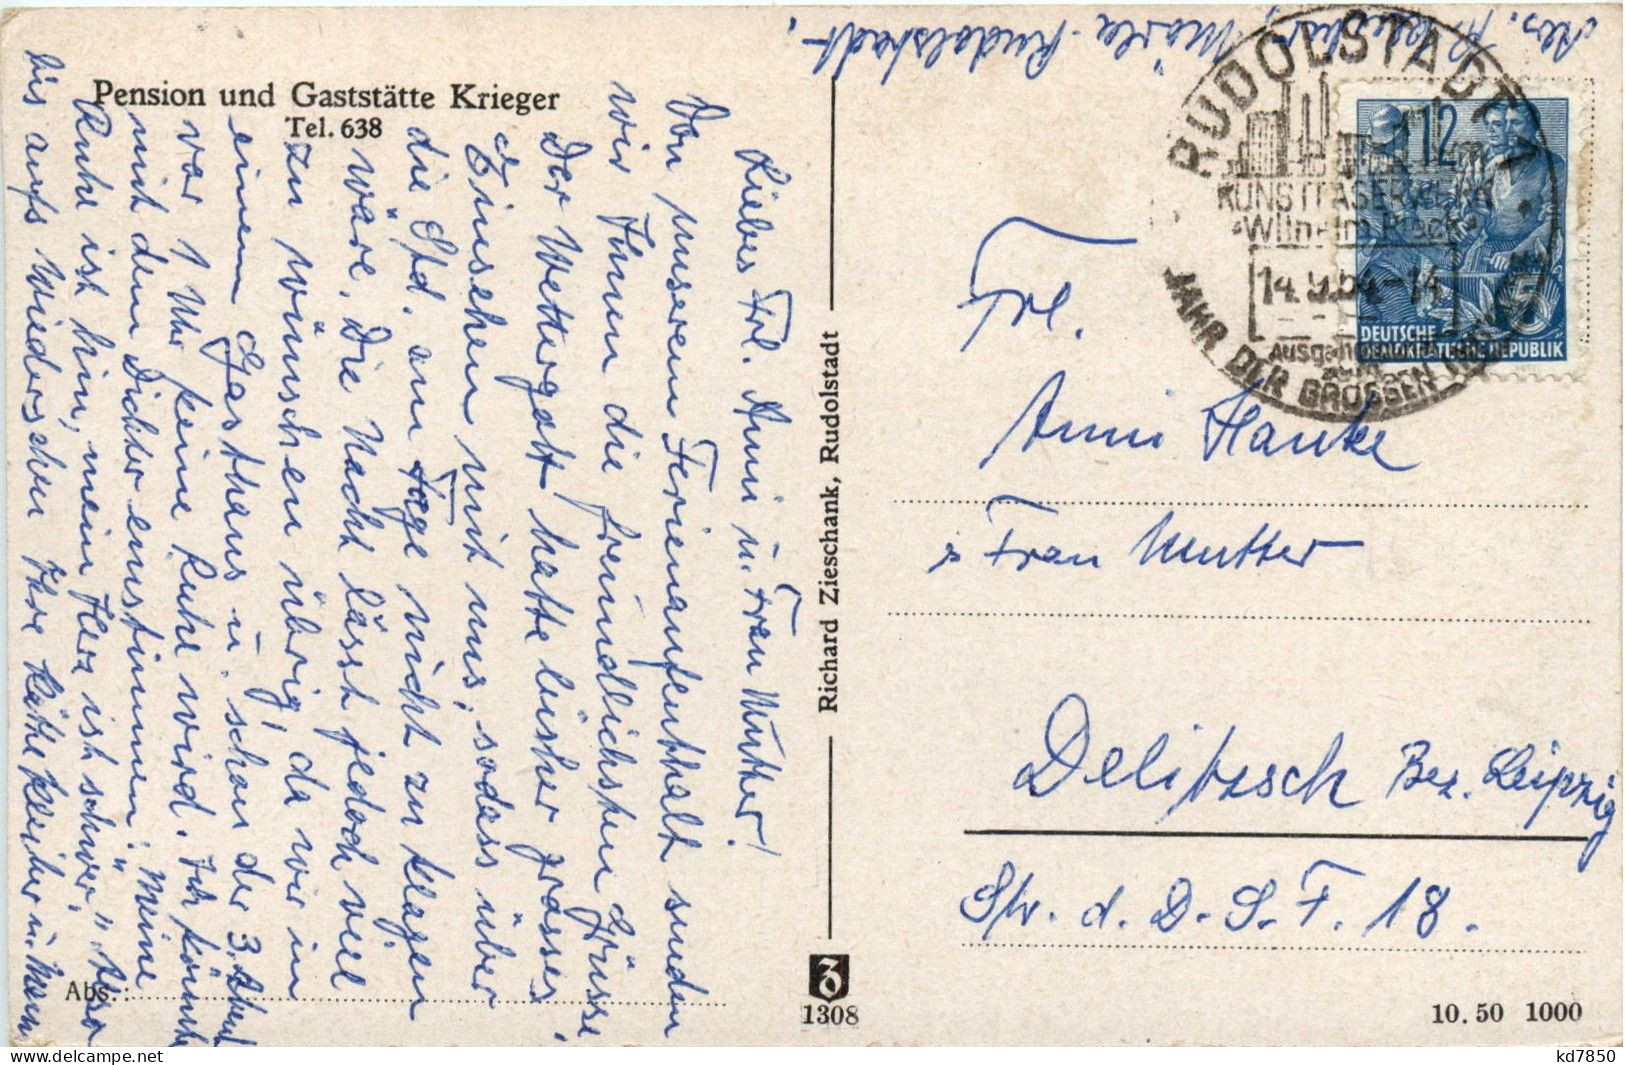 Pension und Gaststätte Krieger
Tel. 638
Liebes Frl. Anni u. Frau Mutter!
Von unserem Ferienaufenthalt senden
wir Ihnen die freundlichsten Grüsse,
Der Wettergott hatte bisher grosses
Einsehen mit uns, sodass über
die Std. am Tage nicht zu klagen
wäre. Die Nacht lässt jedoch viel
zu wünschen übrig, da wir in
einem Gasthaus u. schon der 3. Abend
war 1 Uhr keine Ruhe wird. Ich könnte
mich dem Dichter einstimmen: "Meine
Ruhe ist hin, mein Herz ist schwer." Also
bis aufs Wiedersehen Ihre Käthe u. Mann
Abs.:
Richard Zieschank, Rudolstadt
1308
10.50 1000
Abs. Rudolstadt
RUDOLSTADT 1
KUNSTFASERWERK
"Wilhelm Pieck"
14.9.54-14
JAHR DER GROSSEN
12
DEUTSCHE
DEMOKRATISCHE REPUBLIK
Frl.
Anni Hanke
Frau Mutter
Delitzsch Bez. Leipzig
Str. d. D.S.F. 18.
kd7850
delcampe.net